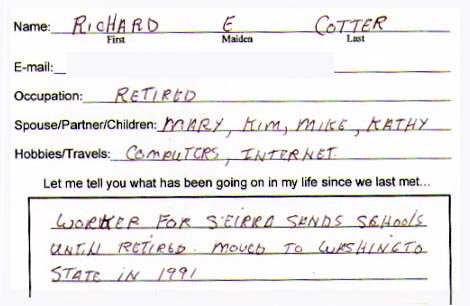 Name: RICHARD E COTTER
First Maiden Last
E-mail:
Occupation: RETIRED
Spouse/Partner/Children: MARY, KIM, MIKE, KATHY
Hobbies/Travels: COMPUTERS, INTERNET.
Let me tell you what has been going on in my life since we last met...
WORKER FOR SEIRRA SANDS SCHOOLS
UNTIL RETIRED. MOVED TO WASHINGTO
STATE IN 1991